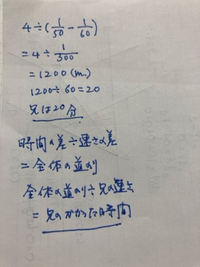 4÷(1/50 - 1/60)
=4÷1/300
=1200 (m)
1200÷60=20
兄は20分
時間の差÷速さの差
=全体の道のり
全体の道のり÷兄の速さ
=兄のかかった時間